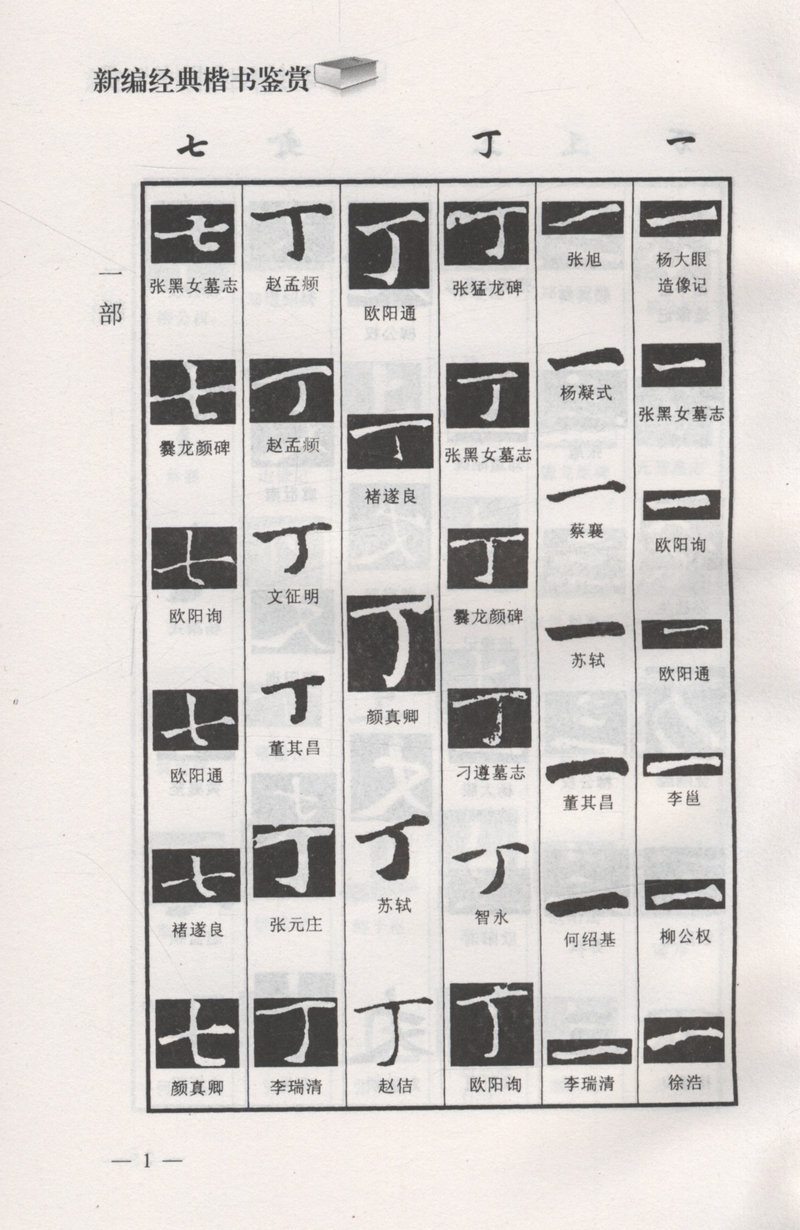 新编经典楷书鉴赏
一
丁
七
一部
一
杨大眼
造像记
一
张黑女墓志
一
欧阳询
一
欧阳通
一
李邕
一
柳公权
一
徐浩
一
张旭
一
杨凝式
一
蔡襄
一
苏轼
一
董其昌
一
何绍基
一
李瑞清
丁
张猛龙碑
丁
张黑女墓志
丁
爨龙颜碑
丁
刁遵墓志
丁
智永
丁
欧阳询
丁
欧阳通
丁
褚遂良
丁
颜真卿
丁
苏轼
丁
赵佶
丁
赵孟𫖯
丁
赵孟𫖯
丁
文征明
丁
董其昌
丁
张元庄
丁
李瑞清
七
张黑女墓志
七
爨龙颜碑
七
欧阳询
七
欧阳通
七
褚遂良
七
颜真卿
— 1 —